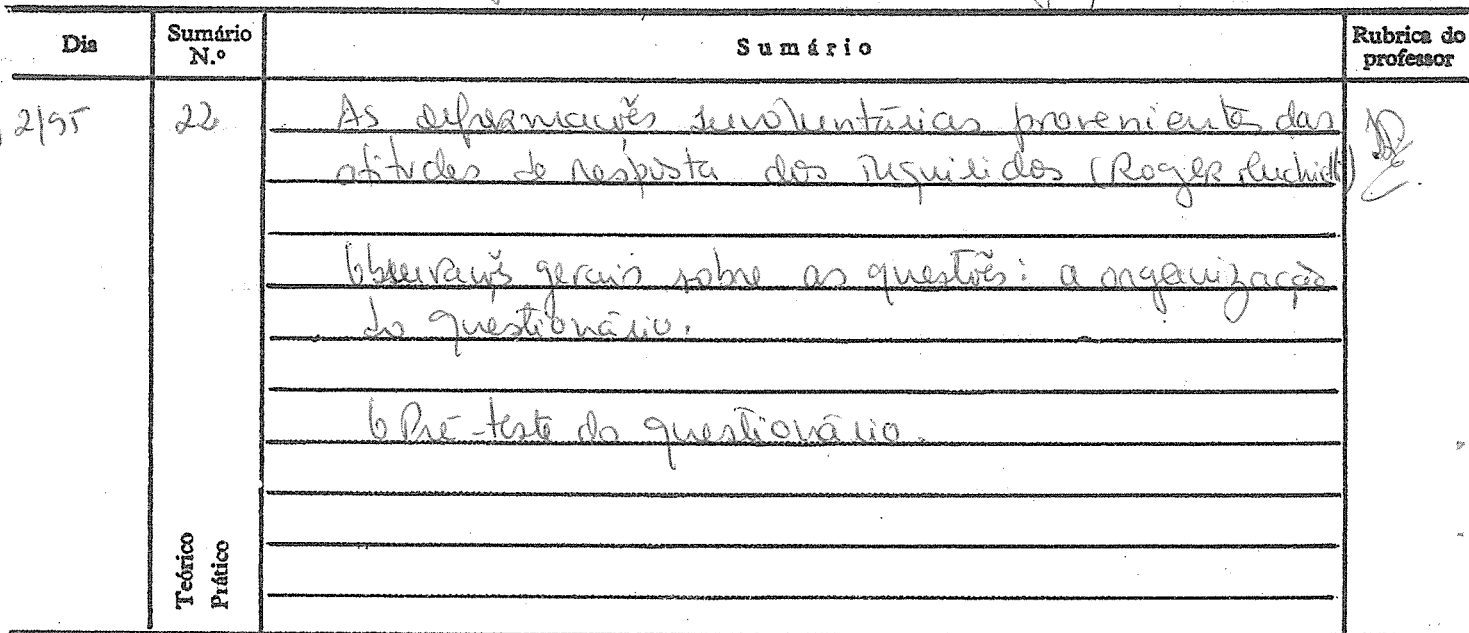 Dia
Sumário N.º
Sumário
Rubrica do professor
2/95
22
As deformações involuntárias provenientes das
atitudes de resposta dos inquiridos (Roger
Observações gerais sobre as questões: a organização
do questionário.
O Pré-teste do questionário.
Teórico
Prático